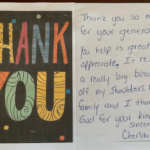 THANK
YOU
Thank you so m
for your genero
You help is great
appreciate. It re
a really big bur
off my shoulders
family and I than
God for your kin
Sincer